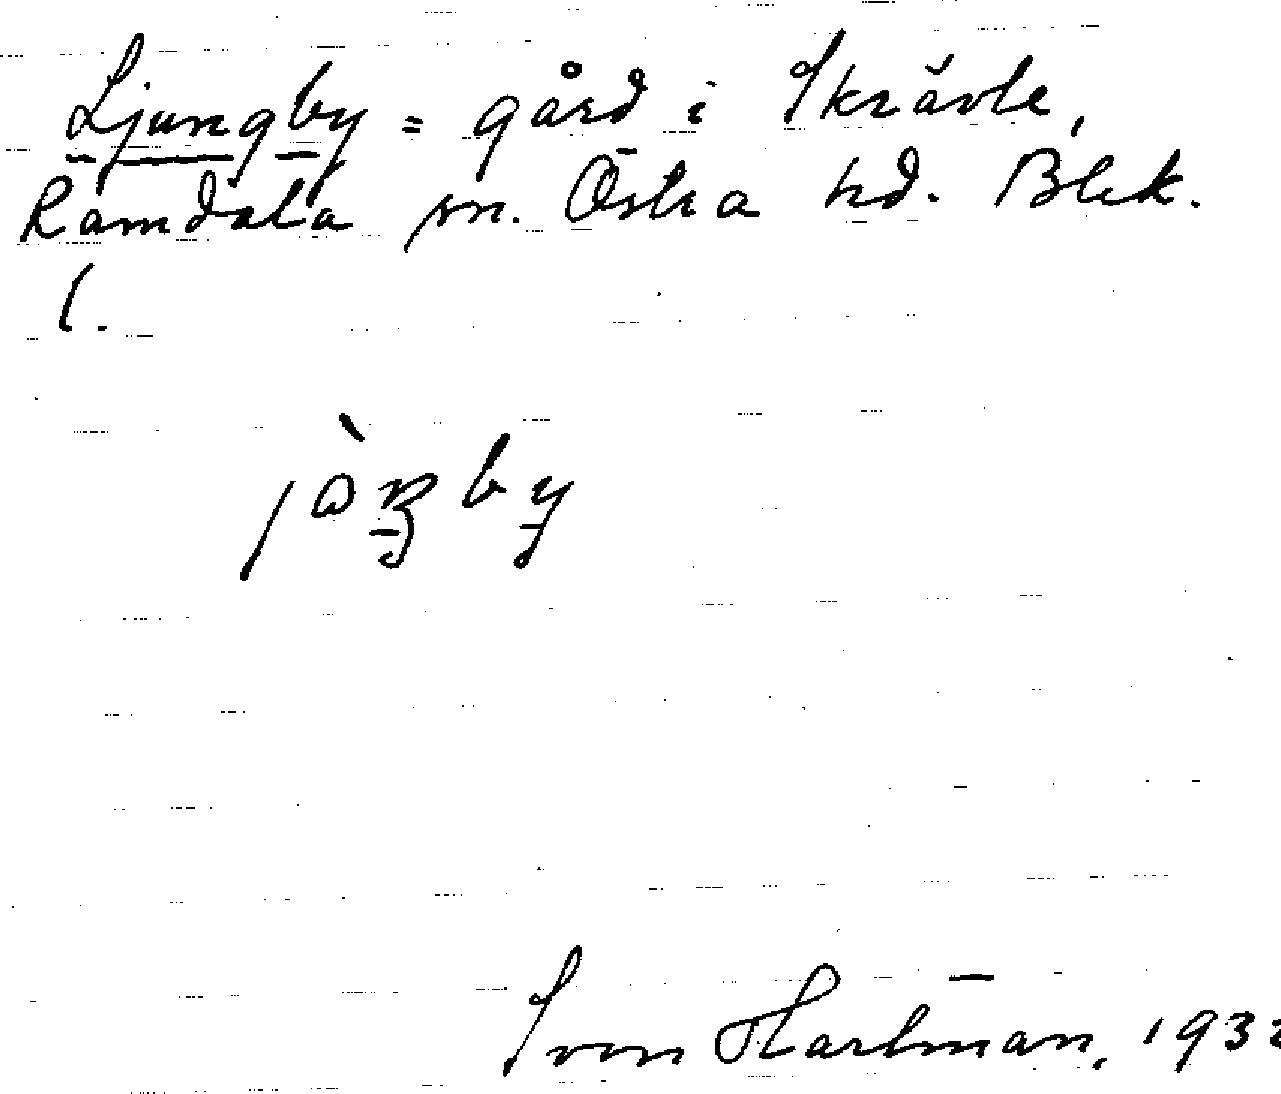 Ljungby = gård i Skrävle,
Ramdala sn. Östra hd. Blek.
l.
jòŋby
Sven Hartman, 193